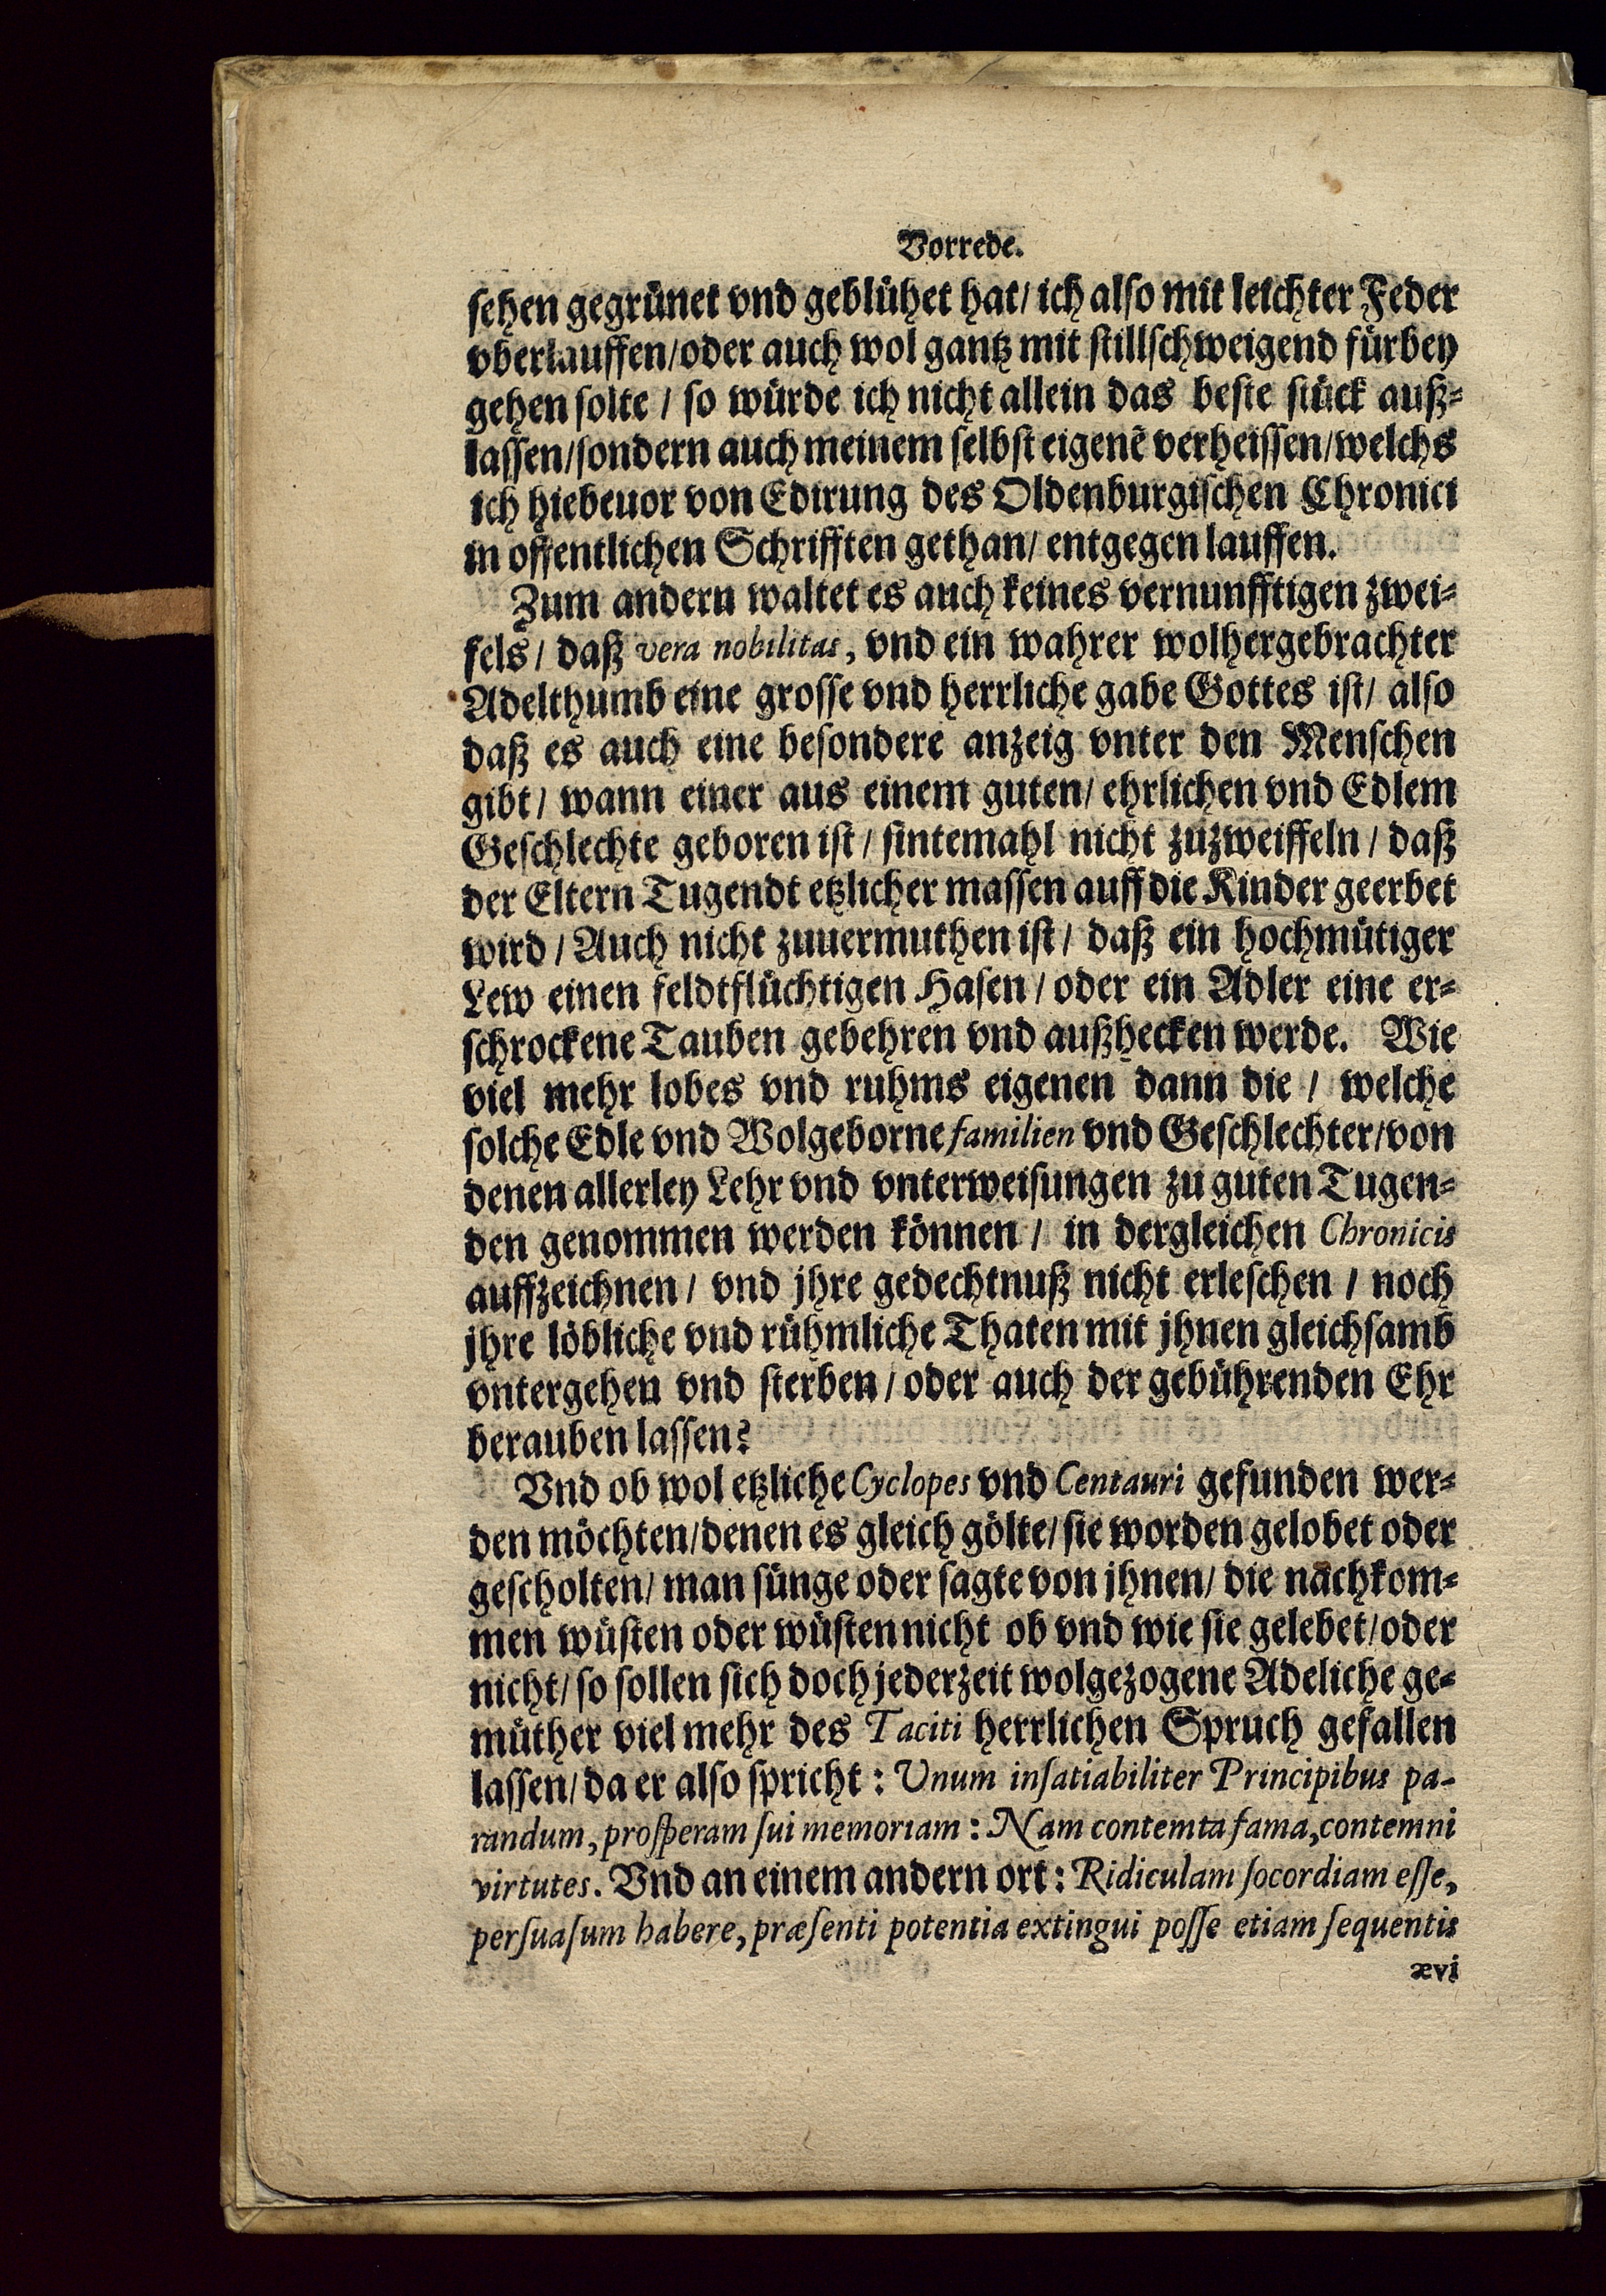 Vorrede.
sehen gegrünet vnd geblühet hat/ ich also mit leichter Feder
vberlauffen/oder auch wol gantz mit stillschweigend fürbey
gehen solte / so würde ich nicht allein das beste stück auß-
lassen/sondern auch meinem selbst eigenē verheissen/welchs
ich hiebeuor von Edirung des Oldenburgischen Chronici
in offentlichen Schrifften gethan/ entgegen lauffen.
Zum andern waltet es auch keines vernunfftigen zwei-
fels/ daß vera nobilitas, vnd ein wahrer wolhergebrachter
Adelthumb eine grosse vnd herrliche gabe Gottes ist/ also
daß es auch eine besondere anzeig vnter den Menschen
gibt/ wann einer aus einem guten/ ehrlichen vnd Edlem
Geschlechte geboren ist/ sintemahl nicht zuzweiffeln/ daß
der Eltern Tugendt etzlicher massen auff die Kinder geerbet
wird/ Auch nicht zuuermuthen ist/ daß ein hochmütiger
Lew einen feldtflüchtigen Hasen/ oder ein Adler eine er-
schrockene Tauben gebehren vnd außhecken werde. Wie
viel mehr lobes vnd ruhms eigenen dann die / welche
solche Edle vnd Wolgeborne familien vnd Geschlechter/von
denen allerley Lehr vnd vnterweisungen zu guten Tugen-
den genommen werden können / in dergleichen Chronicis
auffzeichnen/ vnd jhre gedechtnuß nicht erleschen / noch
jhre löbliche vnd rühmliche Thaten mit jhnen gleichsamb
vntergehen vnd sterben/ oder auch der gebührenden Ehr
berauben lassen?
Vnd ob wol etzliche Cyclopes vnd Centauri gefunden wer-
den möchten/denen es gleich gölte/ sie worden gelobet oder
gescholten/ man sünge oder sagte von jhnen/ die nachkom-
men wüsten oder wüsten nicht ob vnd wie sie gelebet/oder
nicht/ so sollen sich doch jederzeit wolgezogene Adeliche ge-
müther viel mehr des Taciti herrlichen Spruch gefallen
lassen/ da er also spricht: Unum inſatiabiliter Principibus pa-
randum, proſperam ſui memoriam: Nam contemta fama, contemni
virtutes. Vnd an einem andern ort: Ridiculam ſocordiam eſſe,
perſuaſum habere, præſenti potentia extingui poſſe etiam ſequentis
ævi